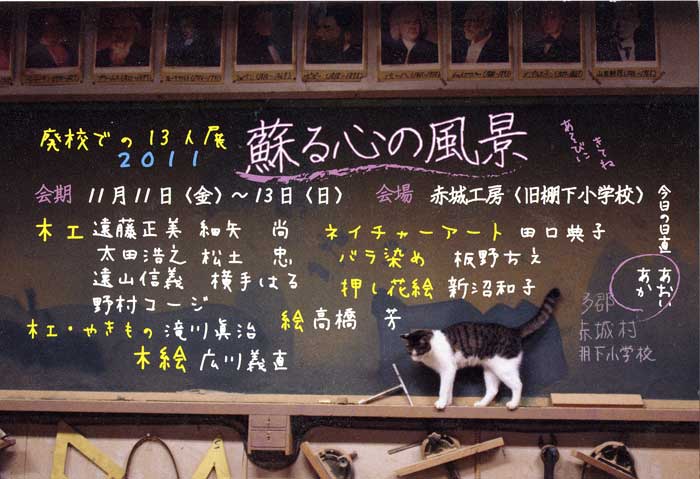 廃校での13人展
2011
蘇る心の風景
あそびに
きてね
会期 11月11日〈金〉〜13日〈日〉 会場 赤城工房〈旧棚下小学校〉
今日の日直
あおい
あか
木工 遠藤正美 細矢 尚
太田浩之 松土 忠
遠山信義 横手はる
野村コージ
木工・やきもの 滝川眞治
木絵 広川義直
ネイチャーアート 田口典子
バラ染め 板野ちえ
押し花絵 新沼和子
絵 高橋 芳
郡
赤城村
棚下小学校